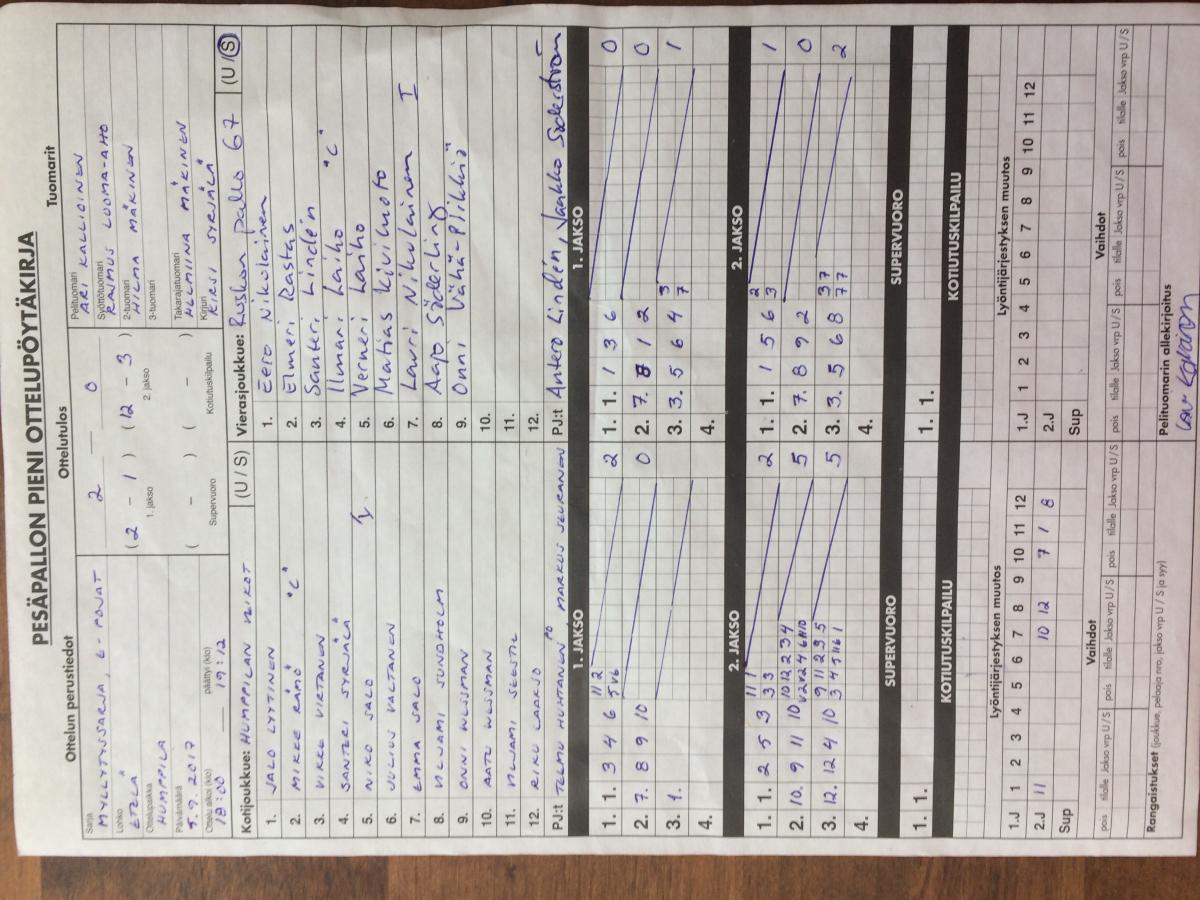 PESÄPALLON PIENI OTTELUPÖYTÄKIRJA
Ottelun perustiedot
Ottelutulos
Tuomarit
Sarja
MYLLYTYSSARJA, E-POJAT
Lohko
ETELÄ
Ottelupaikka
HUMPPILA
Päivämäärä
5.9.2017
Ottelu alkoi (klo)
18:00
päättyi (klo)
19:12
2 0
( 2 - 1 ) ( 12 - 3 )
1. jakso
2. jakso
( - ) ( - )
Supervuoro
Kotiutuskilpailu
Pelituomari
ARI KALLIOINEN
Syöttötuomari
RASMUS LUOMA-AHO
2-tuomari
HILMA MÄKINEN
3-tuomari
Takarajatuomari
HELMIINA MÄKINEN
Kirjuri
KIRSI SYRJÄLÄ
Kotijoukkue: HUMPPILAN VEIKOT (U / S)
1. JALO LYYTINEN
2. MIKKE RÄMÖ "C"
3. VIKKE VIRTANEN
4. SANTERI SYRJÄLÄ
5. NIKO SALO
6. JULIUS VALTANEN
7. EMMA SALO
8. VILJAMI SUNDHOLM
9. ONNI WESSMAN
10. AATU WESSMAN
11. VILJAMI SEESTIL
12. RIKU LAAKSO
PJ:t TEEMU HUHTANEN PO, MARKUS SEURANEN
Vierasjoukkue: Ruskon pallo 67 (U / S)
1. Eero Nikolainen
2. Elmeri Rastas
3. Santeri Lindén
4. Ilmari Laiho "C"
5. Verneri Laiho
6. Matias Kivikoto
7. Lauri Nikulainen I
8. Aapo Söderling
9. Onni Vähä-Piikkiö
10.
11.
12.
PJ:t Antero Lindén, Jaakko Söderström
1. JAKSO
1. 1. 3 4 6 2
2. 7. 8 9 10 0
3. 1.
4.
1. JAKSO
1. 1. 1 3 6 0
2. 7. 8 1 2 0
3. 3. 5 6 4 3 7 1
4.
2. JAKSO
1. 1. 2 5 3 2
2. 10. 9 11 10 5
3. 12. 12 4 10 5
4.
2. JAKSO
1. 1. 1 5 6 2 3 1
2. 7. 8 9 2 0
3. 3. 5 6 8 3 7 7 7 2
4.
SUPERVUORO
1. 1.
SUPERVUORO
1. 1.
KOTIUTUSKILPAILU
KOTIUTUSKILPAILU
Lyöntijärjestyksen muutos
1.J 1 2 3 4 5 6 7 8 9 10 11 12
2.J 11 10 12 7 1 8
Sup
Lyöntijärjestyksen muutos
1.J 1 2 3 4 5 6 7 8 9 10 11 12
2.J
Sup
Vaihdot
pois tilalle Jakso vrp U / S pois tilalle Jakso vrp U / S pois tilalle Jakso vrp U / S
Vaihdot
pois tilalle Jakso vrp U / S pois tilalle Jakso vrp U / S pois tilalle Jakso vrp U / S
Rangaistukset (joukkue, pelaaja nro, jakso vrp U / S ja syy)
Pelituomarin allekirjoitus